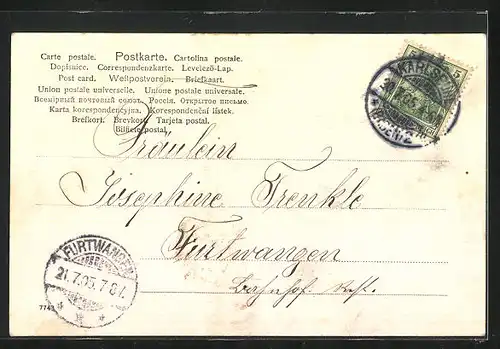 Carte postale. Postkarte. Cartolina postale.
Dopisnice. Correspondenzkarte. Levelező-Lap.
Post card. Weltpostverein. Briefkaart.
Union postale universelle. Unione postale universale.
Всемірный почтовый союз. Россія. Открытое письмо.
Karta korespondencyjna. Korespondenční lístek.
Brefkort. Brevkort. Tarjeta postal.
Billete postal.
5
5
KARLSRUHE
Fräulein
Josephine Trenkle
Furtwangen
Bahnhof
FURTWANGEN
21.7.05. 7-8V.
7743